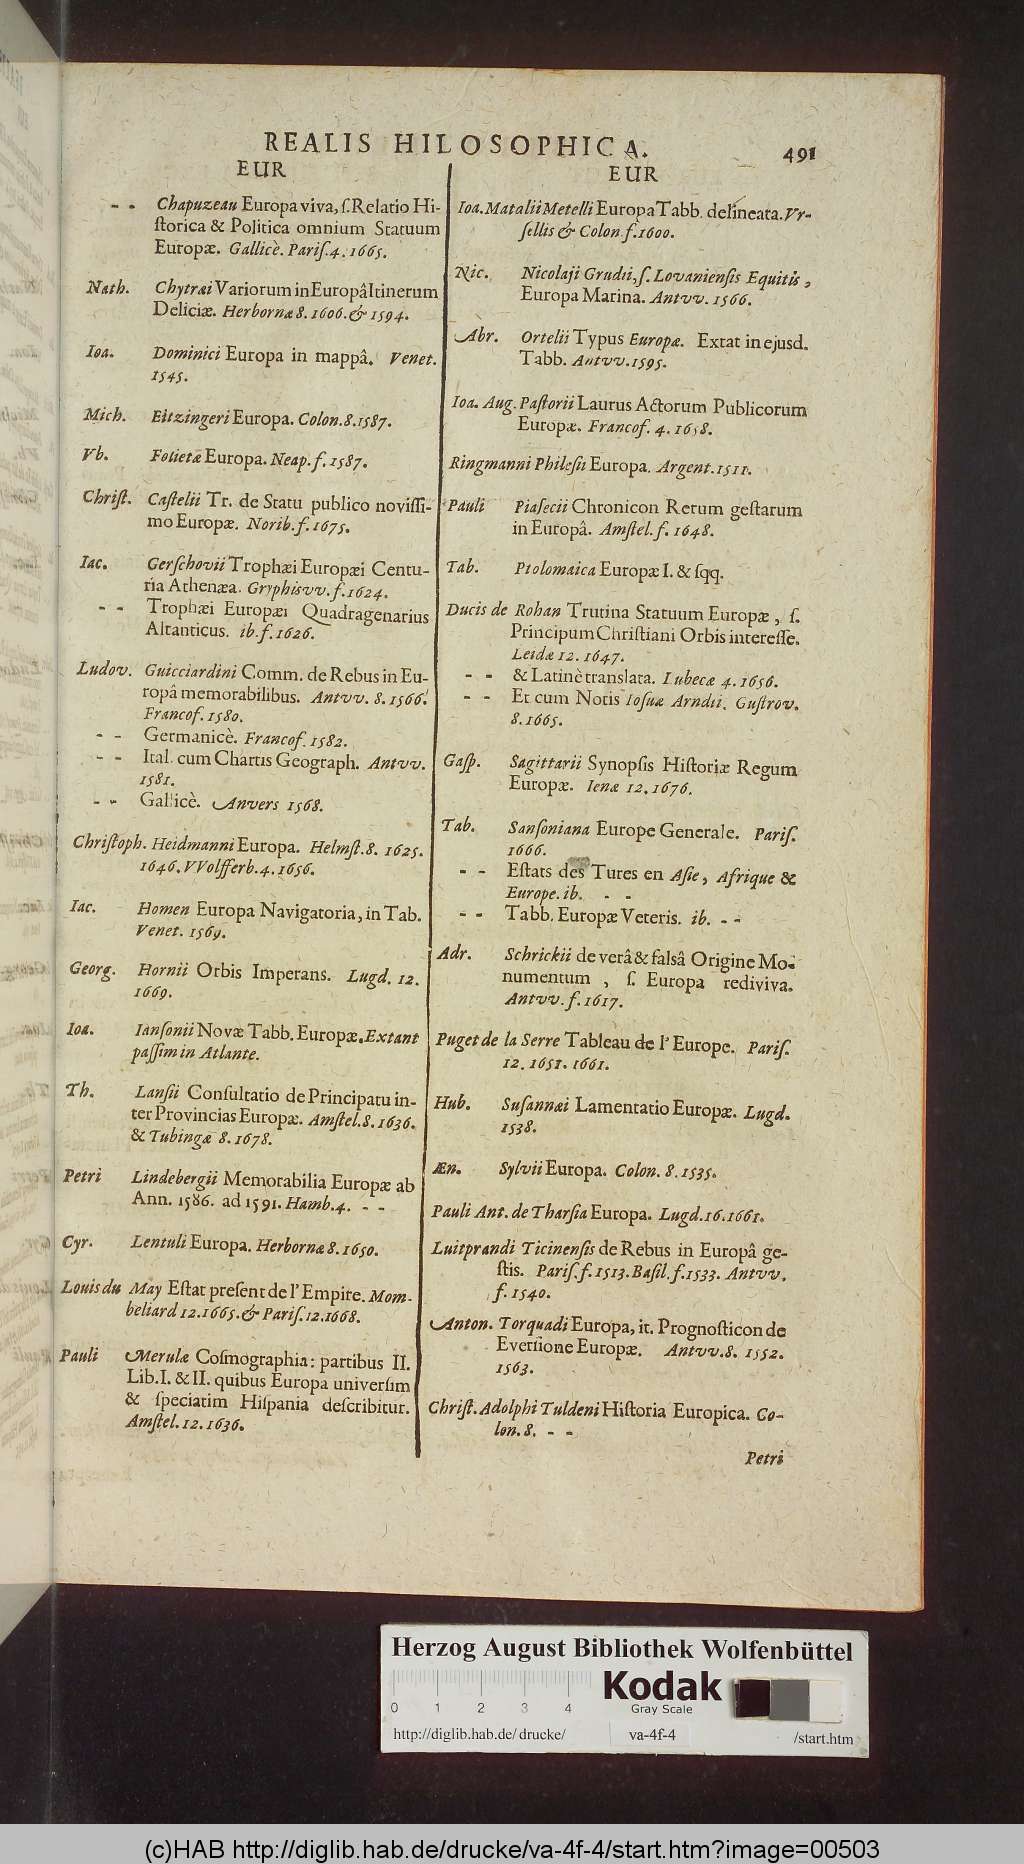 REALIS HILOSOPHICA.
491
EUR
- - Chapuzeau Europa viva, ſ. Relatio Hi-
ſtorica & Politica omnium Statuum
Europæ. Gallicè. Pariſ. 4. 1665.
Nath. Chytræi Variorum in Europâ Itinerum
Deliciæ. Herbornæ 8. 1606. & 1594.
Ioa. Dominici Europa in mappâ. Venet.
1545.
Mich. Eitzingeri Europa. Colon. 8. 1587.
Vb. Folietæ Europa. Neap. f. 1587.
Chriſt. Caſtelii Tr. de Statu publico noviſſi-
mo Europæ. Norib. f. 1675.
Iac. Gerſchovii Trophæi Europæi Centu-
ria Athenæa. Gryphisvv. f. 1624.
- - Trophæi Europæi Quadragenarius
Altanticus. ib. f. 1626.
Ludov. Guicciardini Comm. de Rebus in Eu-
ropâ memorabilibus. Antvv. 8. 1566.
Francof. 1580.
- - Germanicè. Francof. 1582.
- - Ital. cum Chartis Geograph. Antvv.
1581.
- - Gallicè. Anvers 1568.
Chriſtoph. Heidmanni Europa. Helmſt. 8. 1625.
1646. VVolfferb. 4. 1656.
Iac. Homen Europa Navigatoria, in Tab.
Venet. 1569.
Georg. Hornii Orbis Imperans. Lugd. 12.
1669.
Ioa. Ianſonii Novæ Tabb. Europæ. Extant
paſſim in Atlante.
Th. Lanſii Conſultatio de Principatu in-
ter Provincias Europæ. Amſtel. 8. 1636.
& Tubingæ 8. 1678.
Petri Lindebergii Memorabilia Europæ ab
Ann. 1586. ad 1591. Hamb. 4. - -
Cyr. Lentuli Europa. Herbornæ 8. 1650.
Louis du May Eſtat preſent de l' Empire. Mom-
beliard 12. 1665. & Pariſ. 12. 1668.
Pauli Merulæ Coſmographia: partibus II.
Lib. I. & II. quibus Europa univerſim
& ſpeciatim Hiſpania deſcribitur.
Amſtel. 12. 1636.
EUR
Ioa. Matalii Metelli Europa Tabb. delineata. Vr-
ſellis & Colon f. 1600.
Nic. Nicolaji Grudii, ſ. Lovanienſis Equitis,
Europa Marina. Antvv. 1566.
Abr. Ortelii Typus Europæ. Extat in ejusd.
Tabb. Antvv. 1595.
Ioa. Aug. Paſtorii Laurus Actorum Publicorum
Europæ. Francof. 4. 1658.
Ringmanni Phileſii Europa. Argent. 1511.
Pauli Piaſecii Chronicon Rerum geſtarum
in Europâ. Amſtel. f. 1648.
Tab. Ptolomaica Europæ I. & ſqq.
Ducis de Rohan Trutina Statuum Europæ, ſ.
Principum Chriſtiani Orbis intereſſe.
Leidæ 12. 1647.
- - & Latinè translata. Lubecæ 4. 1656.
- - Et cum Notis Ioſuæ Arndii. Guſtrov.
8. 1665.
Gaſp. Sagittarii Synopſis Hiſtoriæ Regum
Europæ. Ienæ 12. 1676.
Tab. Sanſoniana Europe Generale. Pariſ.
1666.
- - Eſtats des Tures en Aſie, Afrique &
Europe. ib. - -
- - Tabb. Europæ Veteris. ib. - -
Adr. Schrickii de verâ & falsâ Origine Mo-
numentum, ſ. Europa rediviva.
Antvv. f. 1617.
Puget de la Serre Tableau de l' Europe. Pariſ.
12. 1651. 1661.
Hub. Suſannæi Lamentatio Europæ. Lugd.
1538.
Æn. Sylvii Europa. Colon. 8. 1535.
Pauli Ant. de Tharſia Europa. Lugd. 16. 1661.
Luitprandi Ticinenſis de Rebus in Europâ ge-
ſtis. Pariſ. f. 1513. Baſil. f. 1533. Antvv.
f. 1540.
Anton. Torquadi Europa, it. Prognoſticon de
Everſione Europæ. Antvv. 8. 1552.
1563.
Chriſt. Adolphi Tuldeni Hiſtoria Europica. Co-
lon. 8. - -
Petri
Herzog August Bibliothek Wolfenbüttel
0 1 2 3 4
Kodak
Gray Scale
http://diglib.hab.de/drucke/ va-4f-4 /start.htm
(c)HAB http://diglib.hab.de/drucke/va-4f-4/start.htm?image=00503